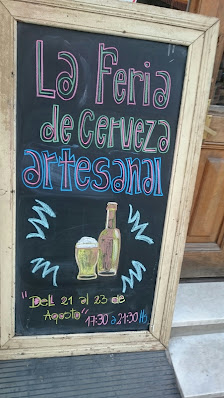 La Feria
de Cerveza
artesanal
"Dell 21 al 23 de
Agosto" 17:30 a 21:30 Hs